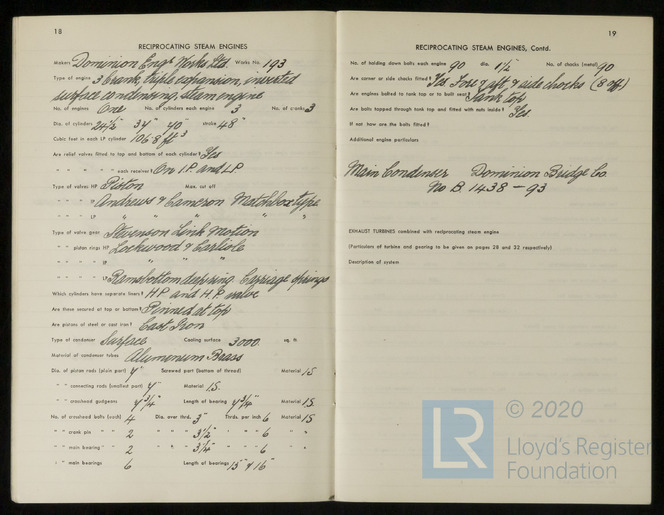 18
RECIPROCATING STEAM ENGINES
Makers Dominion Eng^g Works Ltd. Works No. 193
Type of engine 3 Crank, triple expansion, inverted
surface condensing, steam engine
No. of engines One No. of cylinders each engine 3 No. of cranks 3
Dia. of cylinders 24½" 37" 70" stroke 48"
Cubic feet in each LP cylinder 106·8 ft³
Are relief valves fitted to top and bottom of each cylinder? Yes
" " " " each receiver? On I.P. and L.P
Type of valves HP Piston Max. cut off
" " " IP Andrews & Cameron Matchbox type
" " " LP " " " "
Type of valve gear Stevenson Link Motion
" " piston rings HP Lockwood & Carlisle
" " " IP " " "
" " " LP Ramsbottom deep ring. Carriage springs
Which cylinders have separate liners? H.P and H.P. valve
Are these secured at top or bottom? Pinned at top
Are pistons of steel or cast iron? Cast Iron
Type of condenser Surface Cooling surface 3000 sq. ft
Material of condenser tubes Aluminum Brass
Dia. of piston rods (plain part) Screwed part (bottom of thread) Material 1S
" " connecting rods (smallest part) Material 1S.
" " crosshead gudgeons Length of bearing Material 1S.
No. of crosshead bolts (each) 4 Dia. over thrd. 3" Thrds. per inch 6 Material 1S
" " crank pin " " 2 " " " 3½" " " " 6 " "
" " main bearing " 2 " " " 3¼" " " " 6 " "
" " main bearings 6 Length of bearings 15" & 16"
19
RECIPROCATING STEAM ENGINES, Contd.
No. of holding down bolts each engine 90 dia. 1½ No. of chocks (metal) 90
Are corner or side chocks fitted? Yes. Fore & aft, & side chocks (8 off)
Are engines bolted to tank top or to built seat? Tank top
Are bolts tapped through tank top and fitted with nuts inside? Yes.
If not how are the bolts fitted?
Additional engine particulars
Main Condenser Dominion Bridge Co.
No B 1438 – 93
EXHAUST TURBINES combined with reciprocating steam engine
(Particulars of turbine and gearing to be given on pages 28 and 32 respectively)
Description of system
LR
© 2020
Lloyd's Register
Foundation